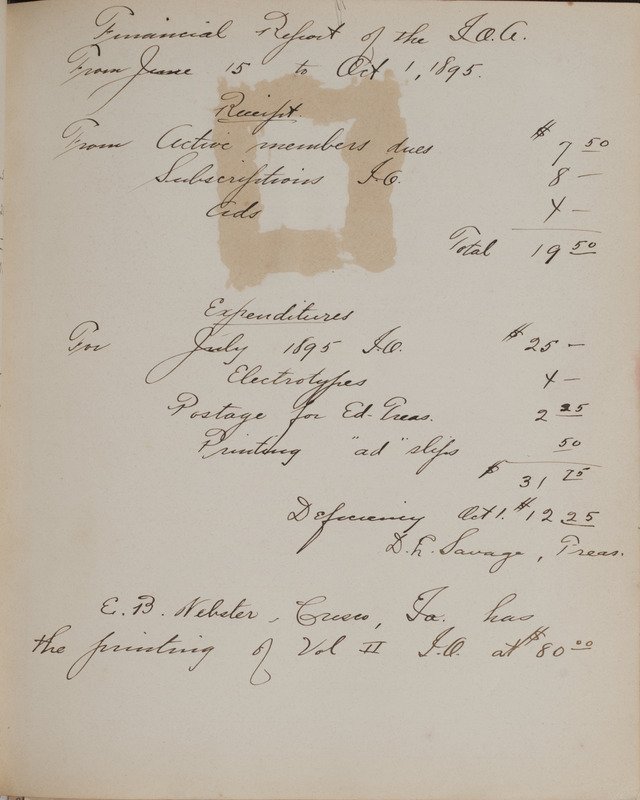 Financial Report of the I.O.A.
From June 15 to Oct 1, 1895.
Receipt.
From Active members dues $7 50
Subscriptions I.O. 8 —
Ads 4 —
Total 19 50
Expenditures
For July 1895 I.O. $25 —
Electrotypes 4 —
Postage for Ed-Treas. 2 25
Printing "ad" slips 50
$ 31 75
Deficiency Oct 1. $12 25
D. L. Savage, Treas.
E. B. Webster, Cresco, Ia. has
the printing of Vol II I.O. at $80 00